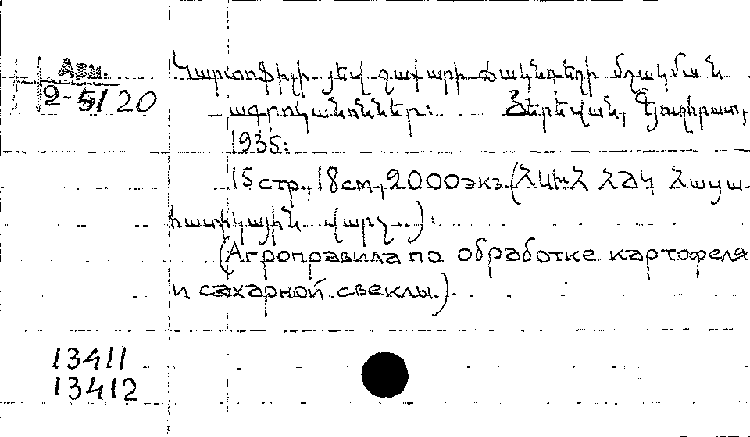 Арм.
2-51/20
Կարտոֆիլի յեվ շաքարի ճակնդեղի մշակման
ագրոկանոններ: Յերեվան, Գյուղհրատ,
1935:
15 стр., 18 см., 2000 экз. (ՀԱԽՀ ՀԺԿ
վարչ..):
(Агроправила по обработке картофеля
и сахарной свеклы.)
13411
13412